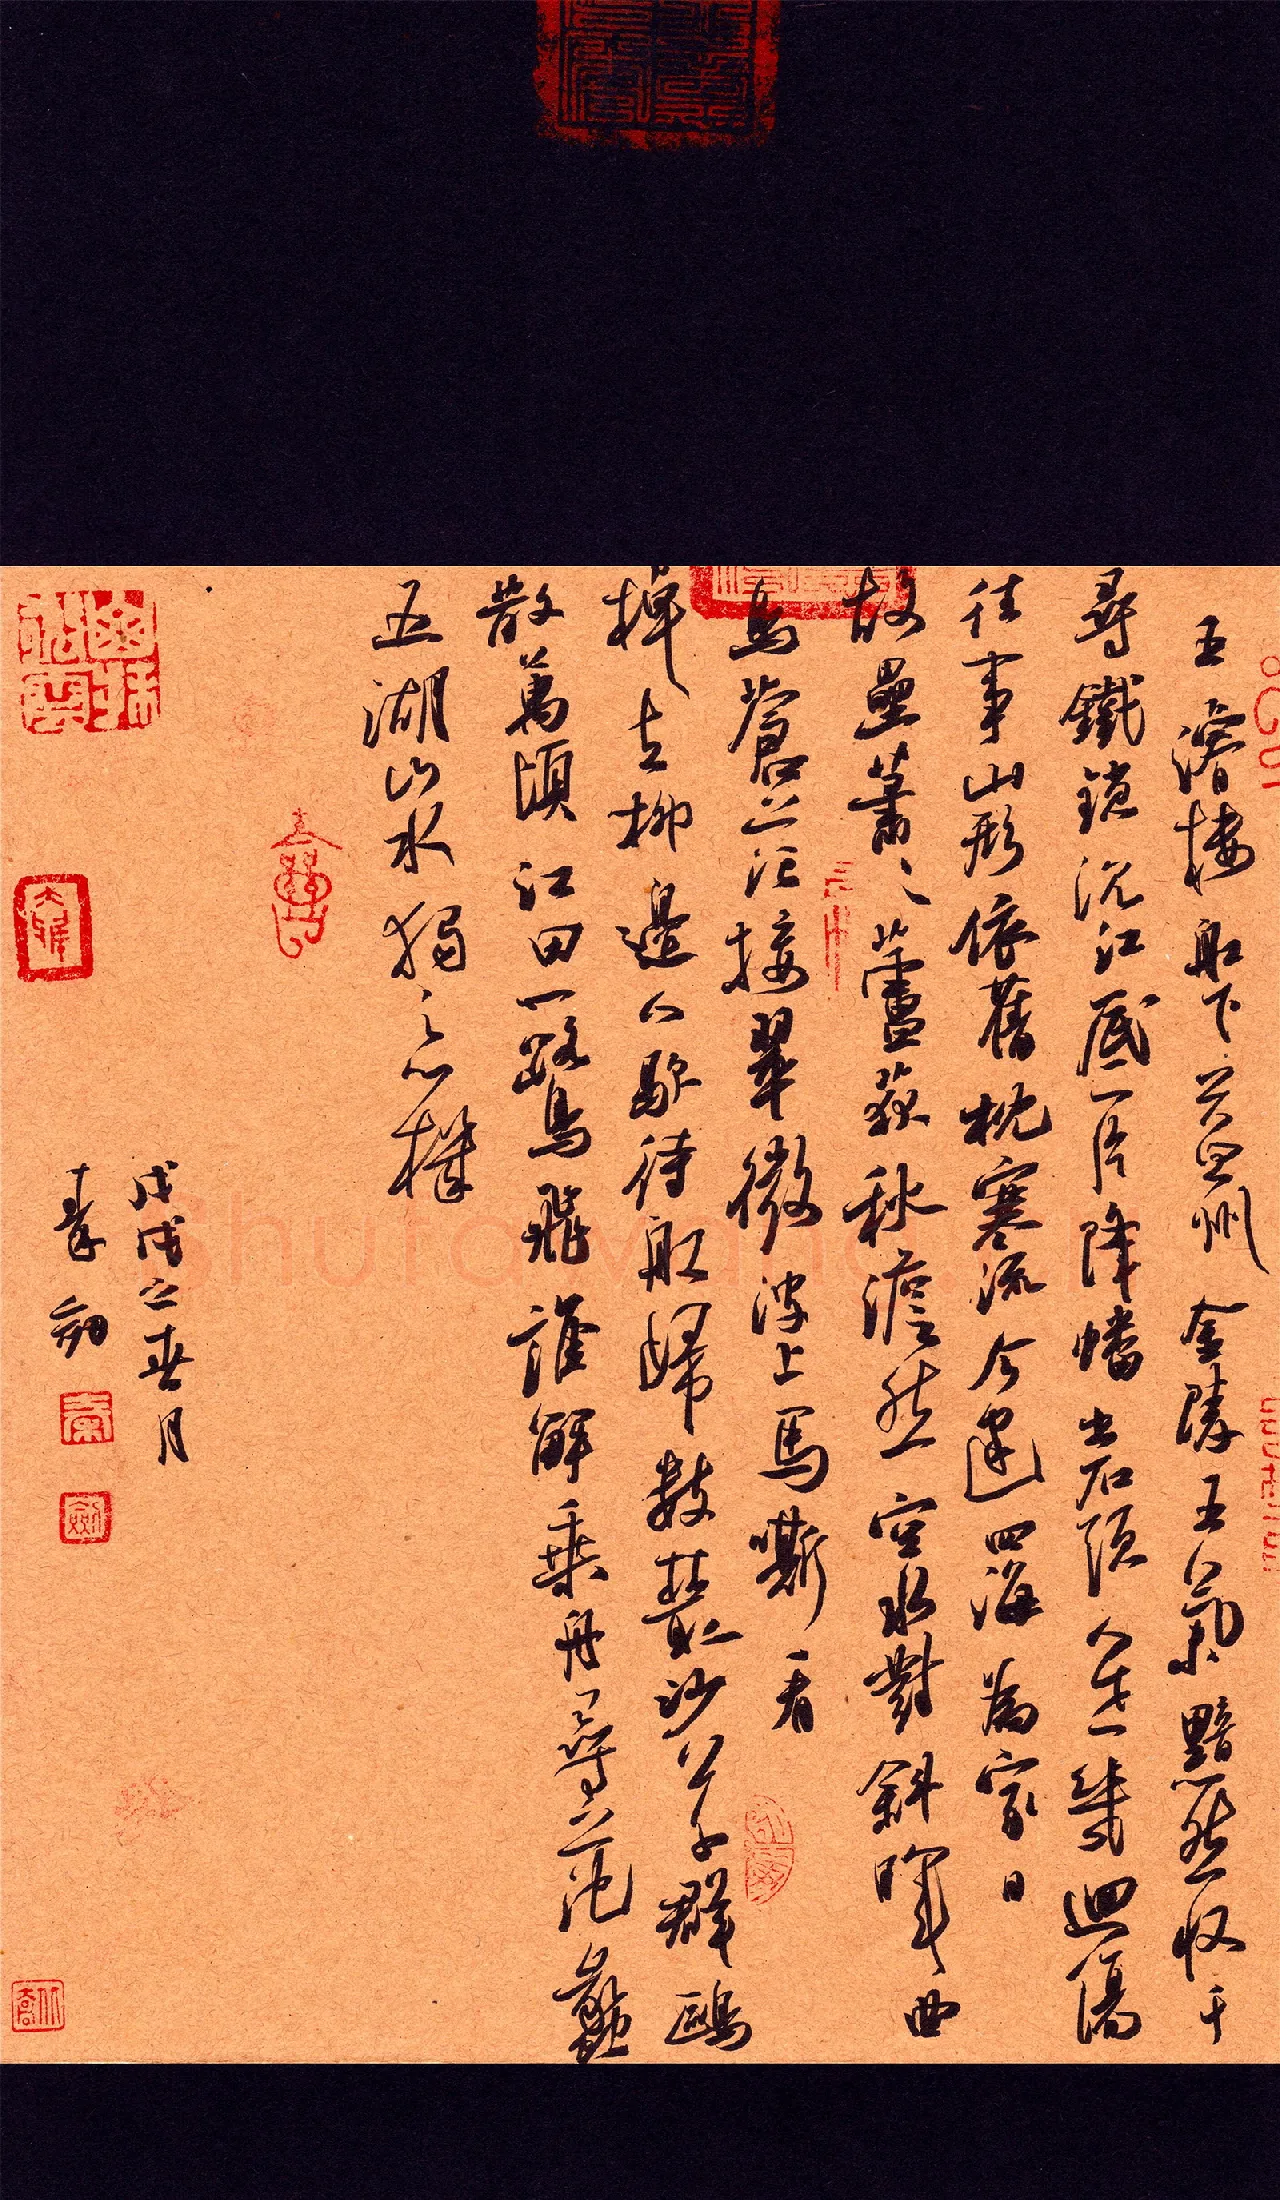 王濬樓船下益州金陵王氣黯然收千
尋鐵鎖沉江底一片降幡出石頭人世幾迴傷
往事山形依舊枕寒流今逢四海為家日
故壘蕭々蘆荻秋澹然空水對斜暉曲
島蒼茫接翠微波上馬嘶看
棹去柳邊人歇待船歸數叢沙草群鷗
散萬頃江田一鷺飛誰解乘舟尋范蠡
五湖山水獨忘機
戊戌之春月
秦劍